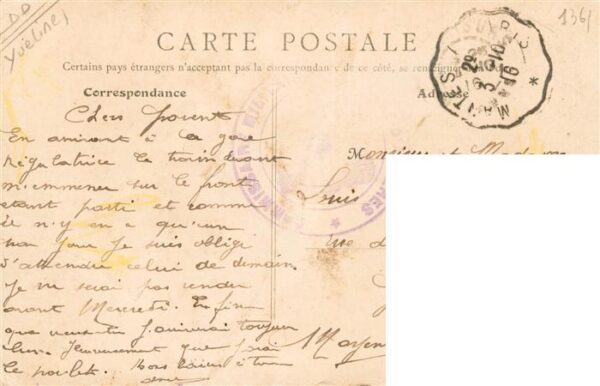 DD
Yvelines
1361
CARTE POSTALE
Certains pays étrangers n'acceptant pas la correspondance de ce côté, se renseigner
Correspondance
Adresse
MANTES
16
Chers parent
En arrivant à la gare
régulatrice le train devant
m'emmener sur le front
étant parti et comme
il n'y en a qu'un
par jour je suis obligé
d'attendre celui de demain
je ne serai pas rendu
avant Mercredi. Enfin
que veux-tu j'arriverai toujours
bien. Heureusement que j'avais
le poulet. Bons baisers à tous
Monsieur et Madame
Louis
rue
Mayenne